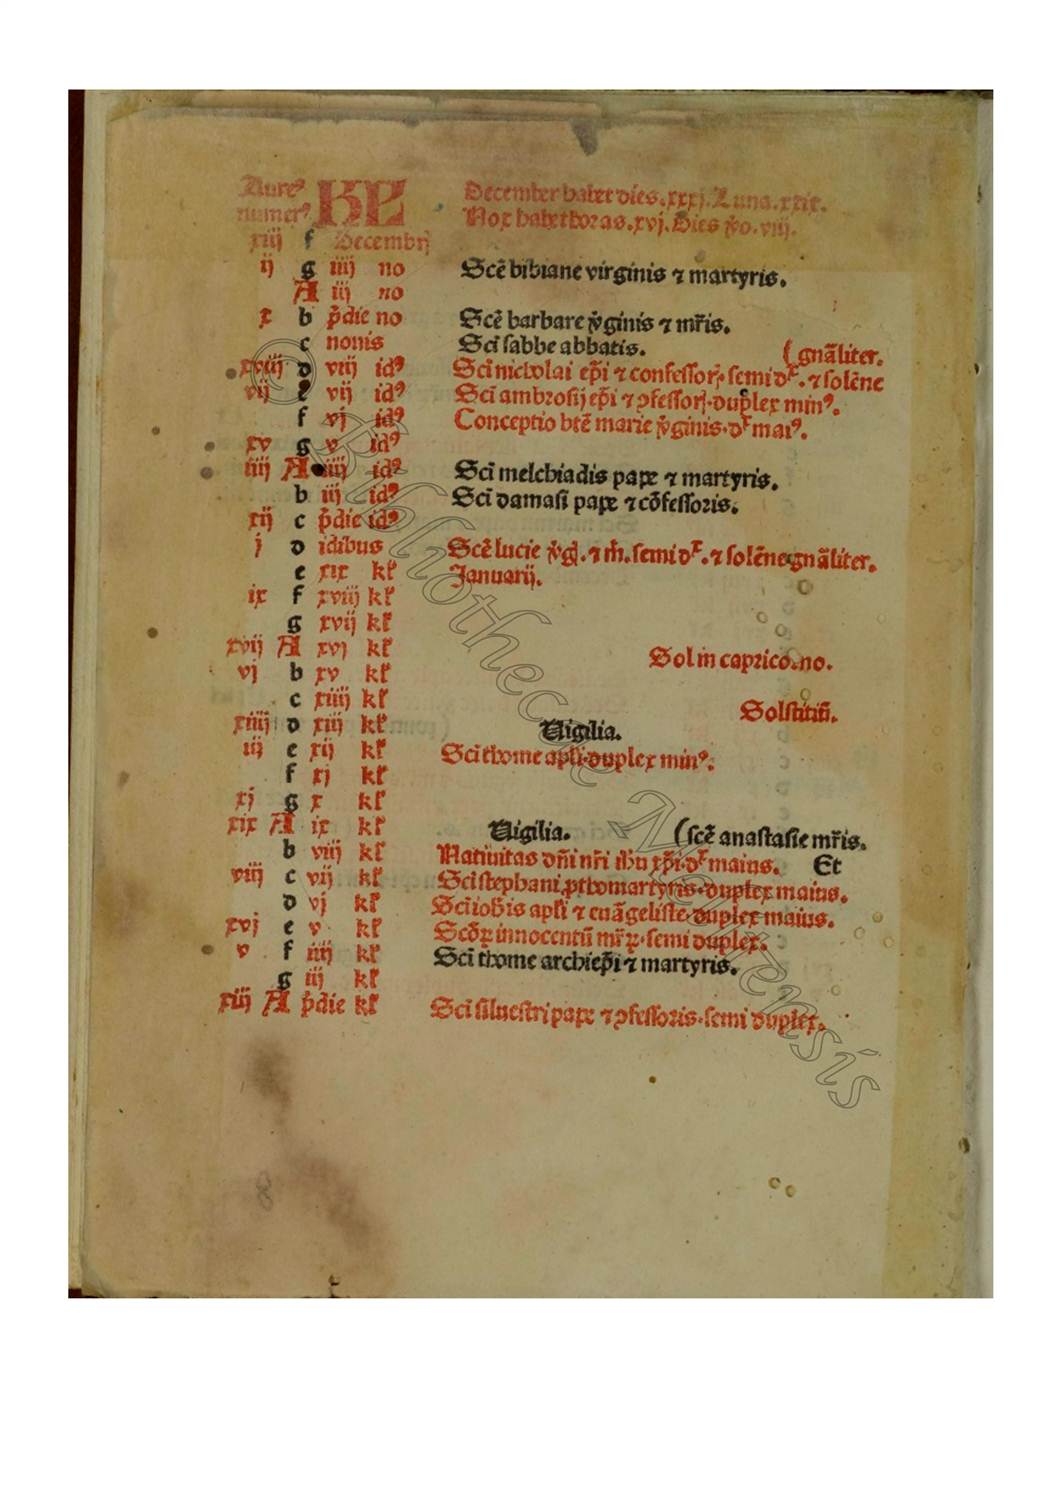 Aure⁹ KL December habet dies.xxxj.Luna.xxix.
numer⁹. Nox habet horas.xvj.Dies ṽo.viij.
xiij f Decembrꝭ
ij g iiij no Scē bibiane virginis ⁊ martyris.
A iij no
x b p̄die no Scē barbare v̄ginis ⁊ mr̄is.
c nonis Scī sabbe abbatis. (gnāliter.
xviij d viij id⁹ Scī nicholai ep̄i ⁊ confessorꝭ.semi dʳ.⁊ solēne
vij e vij id⁹ Scī ambrosij ep̄i ⁊ ꝯfessorꝭ.duplex min⁹.
f vj id⁹ Conceptio btē marie v̄ginis.dʳ mai⁹.
xv g v id⁹
iiij A iiij id⁹ Scī melchiadis pape ⁊ martyris.
b iij id⁹ Scī damasi pape ⁊ cōfessoris.
xij c p̄die id⁹
j d idibus Scē lucie v̄gꝭ.⁊ m̄.semi dʳ.⁊ solēne gnāliter.
e xix kl̄ Januarij.
ix f xviij kl̄
g xvij kl̄
xvij A xvj kl̄ Sol in capricorno.
vj b xv kl̄
c xiiij kl̄ Solstitiū.
xiiij d xiij kl̄ Vigilia.
iij e xij kl̄ Scī thome apl̄i.duplex min⁹.
f xj kl̄
xj g x kl̄
xix A ix kl̄ Vigilia. (scē anastasie mr̄is.
b viij kl̄ Natiuitas dn̄i nr̄i ih̄u xp̄i.dʳ maius. Et
viij c vij kl̄ Scī stephani ꝓthomartyris.duplex maius.
d vj kl̄ Scī ioh̄is apl̄i ⁊ euāgeliste.duplex maius.
xvj e v kl̄ Scōꝝ innocentū mr̄ꝝ.semi duplex.
v f iiij kl̄ Scī thome archiep̄i ⁊ martyris.
g iij kl̄
xiij A p̄die kl̄ Scī siluestri pape ⁊ ꝯfessoris.semi duplex.
© Bibliotheca Vallicelliana